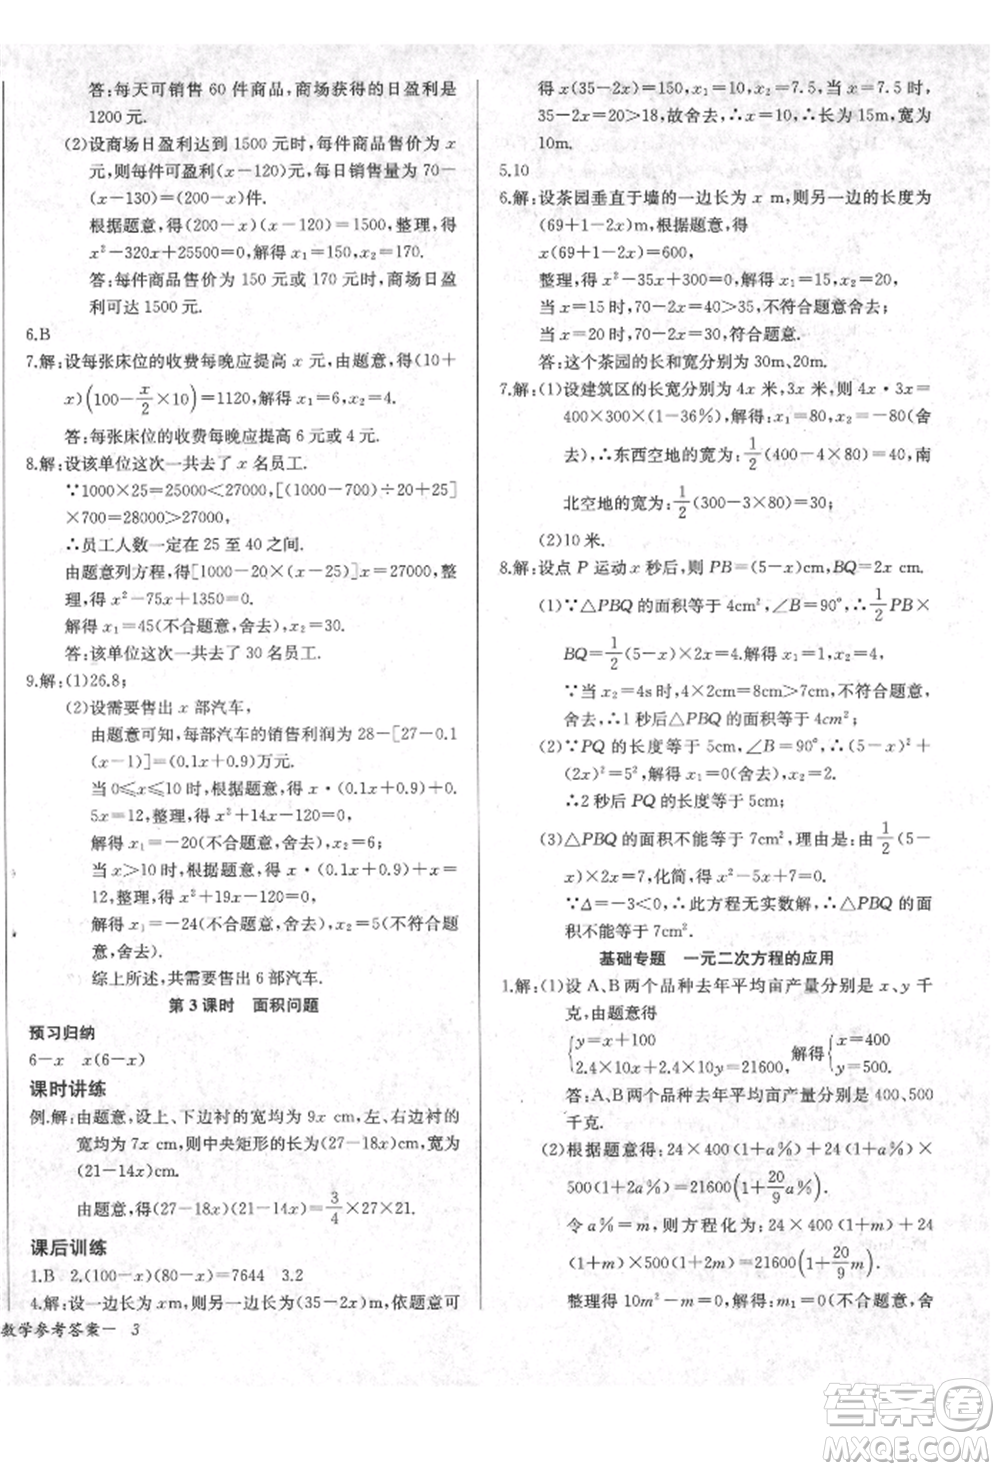 答:每天可销售 60 件商品,商场获得的日盈利是
1200 元.
(2)设商场日盈利达到 1500 元时,每件商品售价为 x
元,则每件可盈利(x－120)元,每日销售商品为 70－
(x－130)＝(200－x)件.
根据题意,得(200－x)(x－120)＝1500,整理,得
x²－320x＋25500＝0,解得 x₁＝150,x₂＝170.
答:每件商品售价为 150 元或 170 元时,商场日盈
利可达 1500 元.
6.B
7.解:设每张床位的收费每晚应提高 x 元,由题意,得(10＋
x)(100－x/2×10)＝1120,解得 x₁＝6,x₂＝4.
答:每张床位的收费每晚应提高 6 元或 4 元.
8.解:设该单位这次一共去了 x 名员工.
∵1000×25＝25000<27000,[(1000－700)÷20＋25]
×700＝28000>27000,
∴员工人数一定在 25 至 40 之间.
由题意列方程,得[1000－20(x－25)]x＝27000,整
理,得 x²－75x＋1350＝0.
解得 x₁＝45(不合题意,舍去),x₂＝30.
答:该单位这次一共去了 30 名员工.
9.解:(1)26.8;
(2)设需要售出 x 部汽车,
由题意可知,每部汽车的销售利润为 28－[27－0.1
(x－1)]＝(0.1x＋0.9)万元.
当 0⩽x⩽10 时,根据题意,得 x·(0.1x＋0.9)＋0.
5x＝12,整理,得 x²＋14x－120＝0,
解得 x₁＝－20(不合题意,舍去),x₂＝6;
当 x>10 时,根据题意,得 x·(0.1x＋0.9)＋x＝
12,整理,得 x²＋19x－120＝0,
解得 x₁＝－24(不合题意,舍去),x₂＝5(不合题
意,舍去).
综上所述,共需要售出 6 部汽车.
第 3 课时　面积问题
预习归纳
6－x　x(6－x)
课时讲练
例.解:由题意,设上、下边衬的宽均为 9x cm,左、右边衬的
宽均为 7x cm,则中央矩形的长为(27－18x)cm,宽为
(21－14x)cm.
由题意,得(27－18x)(21－14x)＝3/4×27×21.
课后训练
1.B　2.(100－x)(80－x)＝7644　3.2
4.解:设一边长为 xm,则另一边长为(35－2x)m,依题意可
数学参考答案－ 3
得 x(35－2x)＝150,x₁＝10,x₂＝7.5.当 x＝7.5 时,
35－2x＝20>18,故舍去,∴x＝10,∴长为 15m,宽为
10m.
5.10
6.解:设茶园垂直于墙的一边长为 x m,则另一边的长度为
(69＋1－2x)m,根据题意,得
x(69＋1－2x)＝600,
整理,得 x²－35x＋300＝0,解得 x₁＝15,x₂＝20,
当 x＝15 时,70－2x＝40>35,不符合题意舍去;
当 x＝20 时,70－2x＝30,符合题意.
答:这个茶园的长和宽分别为 30m、20m.
7.解:(1)设建筑区的长宽分别为 4x 米,3x 米,则 4x·3x＝
400×300×(1－36%),解得:x₁＝80,x₂＝－80(舍
去),∴东西空地的宽为:1/2(400－4×80)＝40,南
北空地的宽为:1/2(300－3×80)＝30;
(2)10 米.
8.解:设点 P 运动 x 秒后,则 PB＝(5－x)cm,BQ＝2x cm.
(1)∵△PBQ 的面积等于 4cm²,∠B＝90°,∴1/2PB×
BQ＝1/2(5－x)×2x＝4.解得:x₁＝1,x₂＝4.
∵当 x＝4s 时,2x＝2×4＝8cm>7cm,不符合题意,
舍去;∴1 秒后△PBQ 的面积等于 4cm²;
(2)∵PQ 的长度等于 5cm,∠B＝90°,∴(5－x)²＋
(2x)²＝5²,解得:x₁＝0(舍去),x₂＝2.
∴2 秒后 PQ 的长度等于 5cm;
(3)△PBQ 的面积不能等于 7cm².理由是:1/2(5－
x)×2x＝7,化简,得 x²－5x＋7＝0.
∵Δ＝－3<0,∴此方程无实数解,∴△PBQ 的面
积不能等于 7cm².
基础专题　一元二次方程的应用
1.解:(1)设 A、B 两个品种去年平均亩产量分别是 x、y 千
克,由题意得
{y＝x＋100 2.4×10x＋2.4×10y＝21600,解得{x＝400 y＝500.
答:A、B 两个品种去年平均亩产量分别是 400、500
千克.
(2)根据题意得:24×400(1＋a%)＋24×
500(1＋2a%)＝21600(1＋20/9a%).
令 a%＝m,则方程化为:24×400(1＋m)＋24×
500(1＋2m)＝21600(1＋20/9m).
整理得 10m²－m＝0,解得:m₁＝0(不合题意,舍
答案圈
MXQE.COM